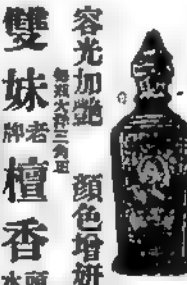 容光加艷 顏色增妍
每瓶大三角正
雙妹老牌檀香頭水